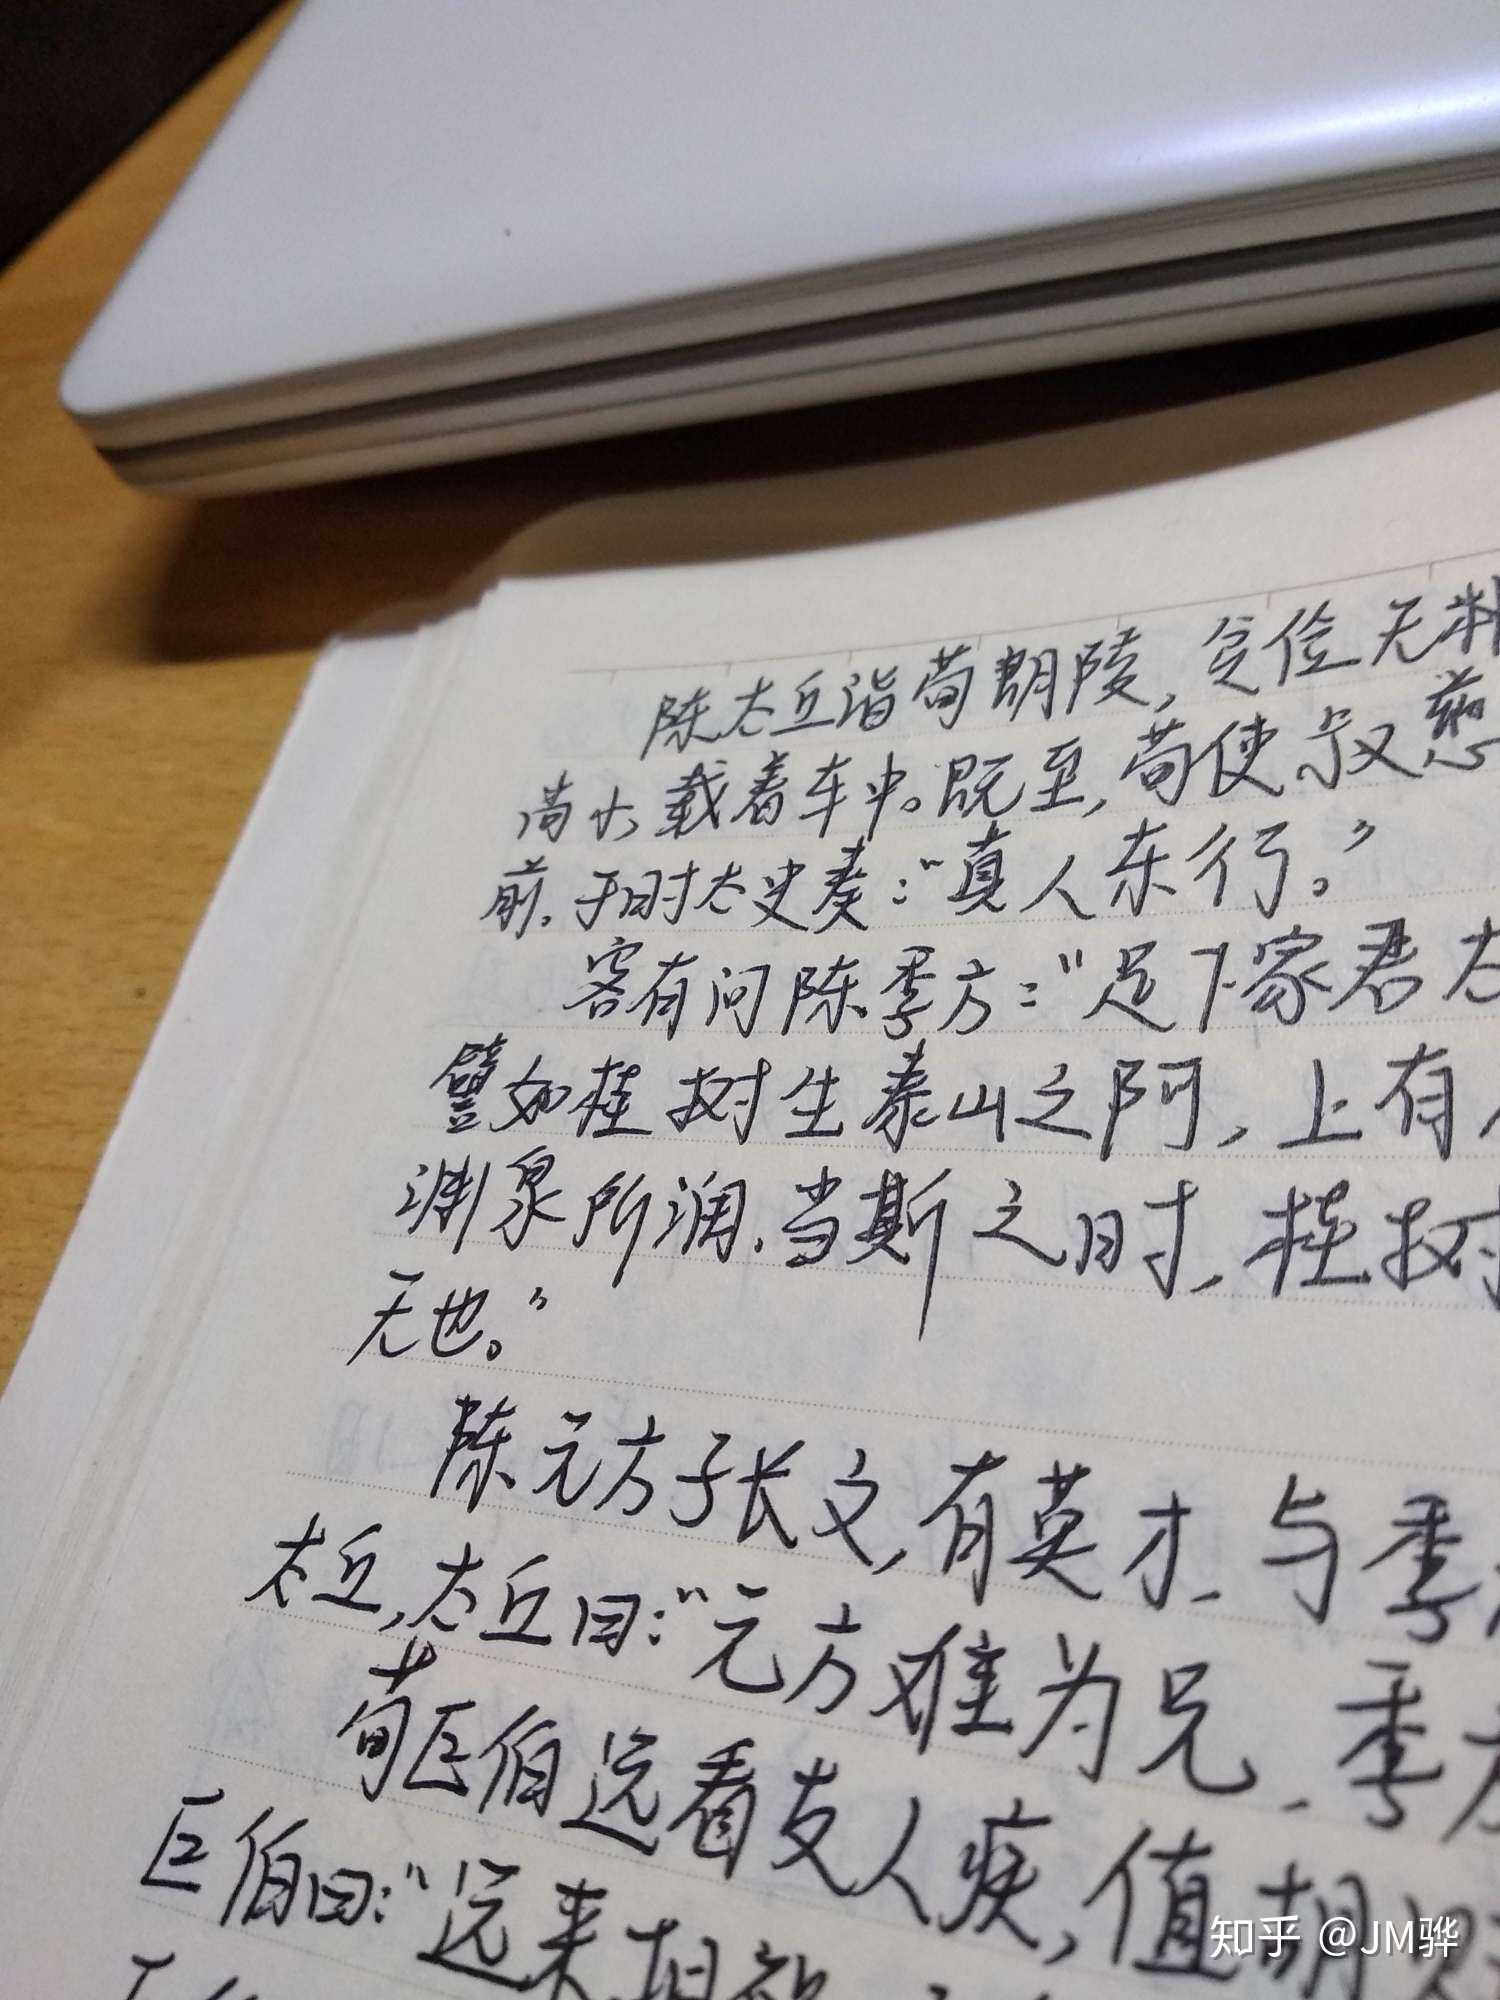 陈太丘诣荀朗陵，贫俭无
尚小，载着车中。既至，荀使叔慈
前。于时太史奏：“真人东行。”
客有问陈季方：“足下家君太
譬如桂树生泰山之阿，上有
渊泉所润。当斯之时，桂树
无也。”
陈元方子长文，有英才，与季
太丘，太丘曰：“元方难为兄，季方
荀巨伯远看友人疾，值胡贼
巨伯曰：“远来相
知乎 @JM骅